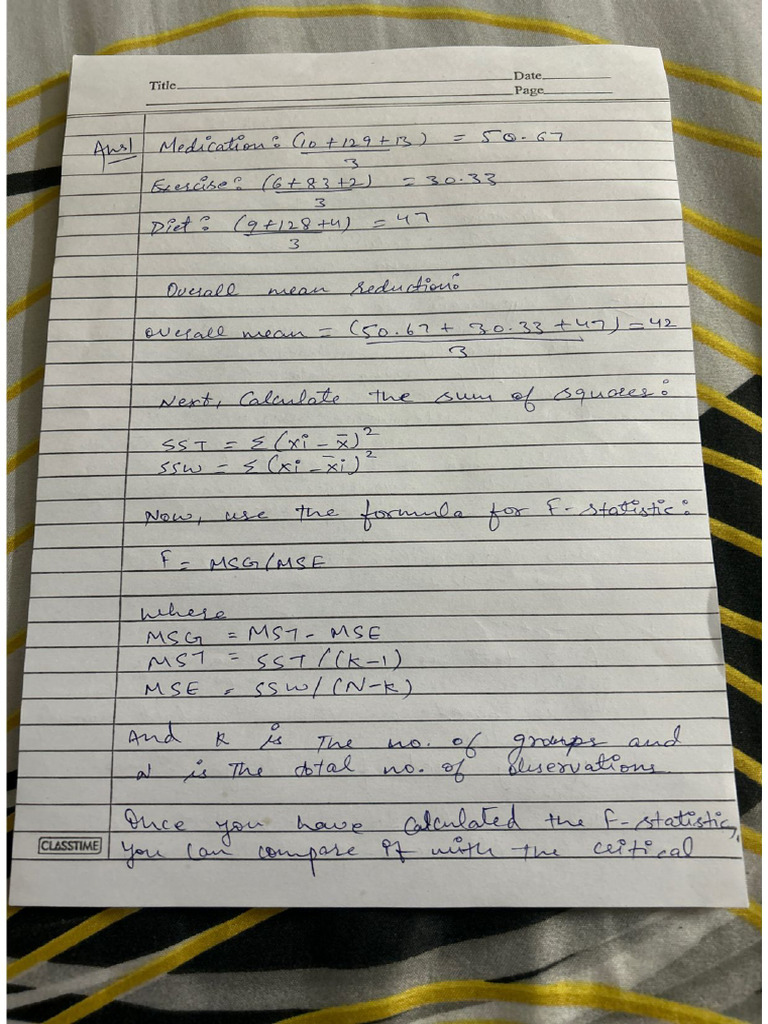 Title
Date
Page
Ans1
Medication: (10 + 129 + 13) = 50.67
3
Exercise: (6+83+2) = 30.33
3
Diet: (9+128+4) = 47
3
Overall mean reduction:
Overall mean = (50.67 + 30.33 + 47) = 42
3
Next, Calculate the sum of squares:
SST = Σ (xi - x̄)²
SSW = Σ (xi - x̄i)²
Now, use the formula for F-statistic:
F = MSG/MSE
Where
MSG = MST - MSE
MST = SST/(K-1)
MSE = SSW/(N-K)
And K is The no. of groups and
N is The total no. of observations.
Once you have calculated the F-statistic,
CLASSTIME
you can compare it with the critical